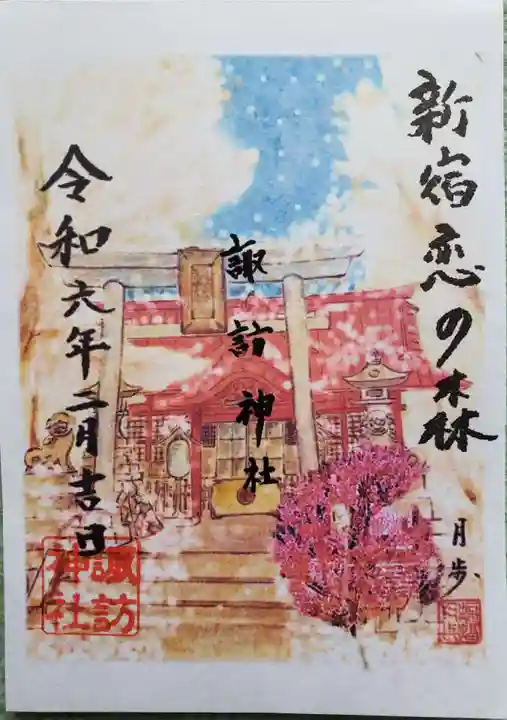 新宿恋の森
月歩
諏訪神社
令和六年二月吉日
諏訪
神社